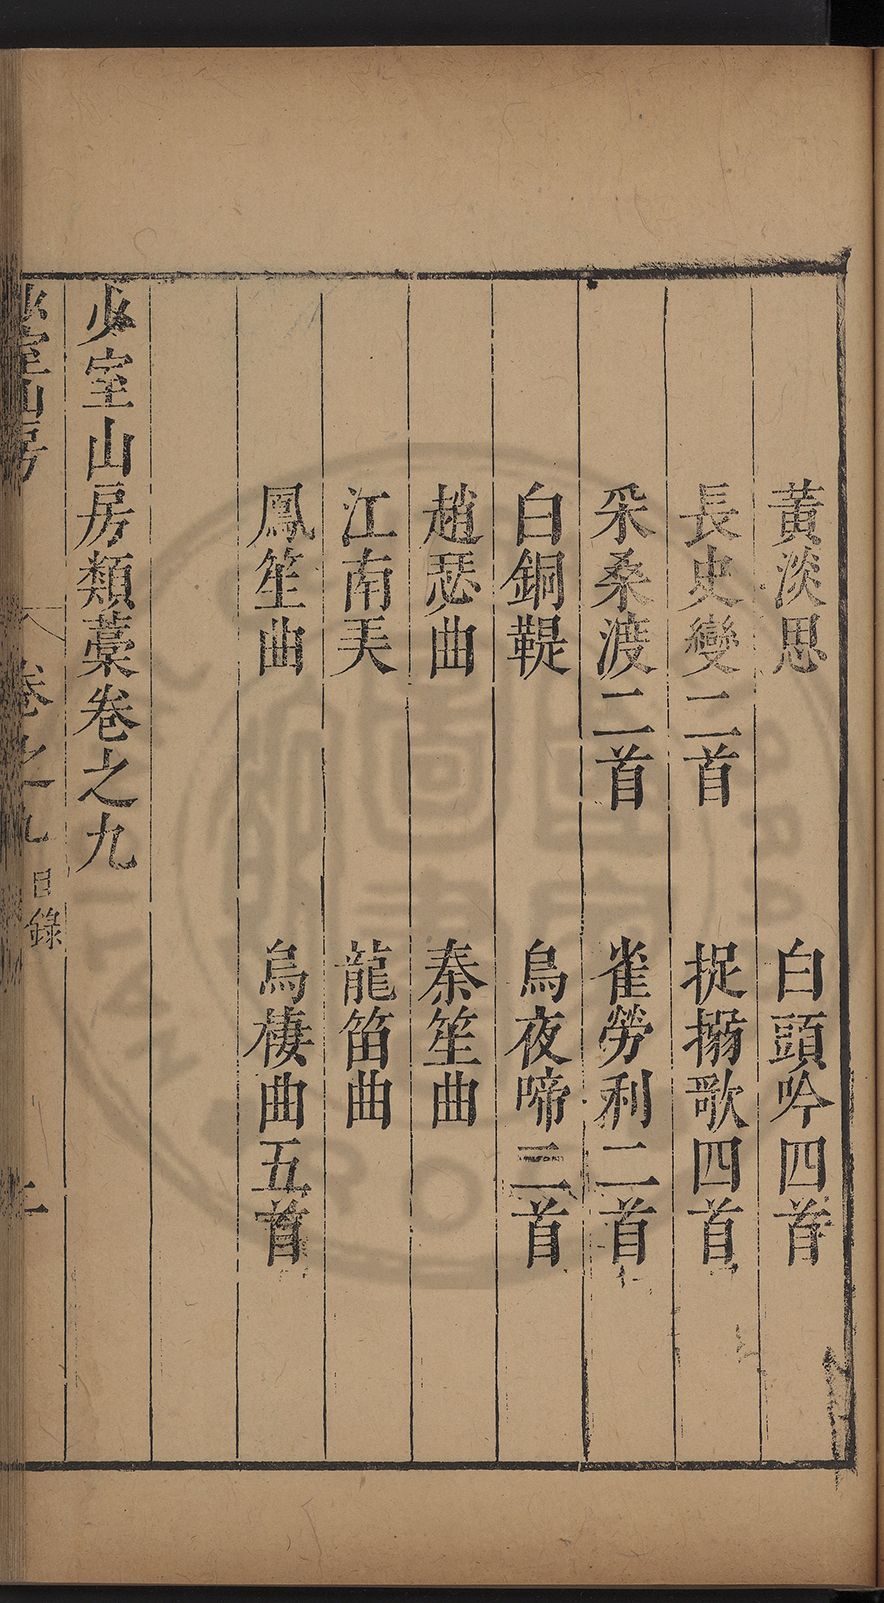 黃淡思　白頭吟四首
長史變二首　捉搦歌四首
采桑渡二首　雀勞利二首
白銅鞮　烏夜啼二首
趙瑟曲　秦筝曲
江南弄　龍笛曲
鳳笙曲　烏棲曲五首
少室山房類藁卷之九
少室山房　卷之九　目錄